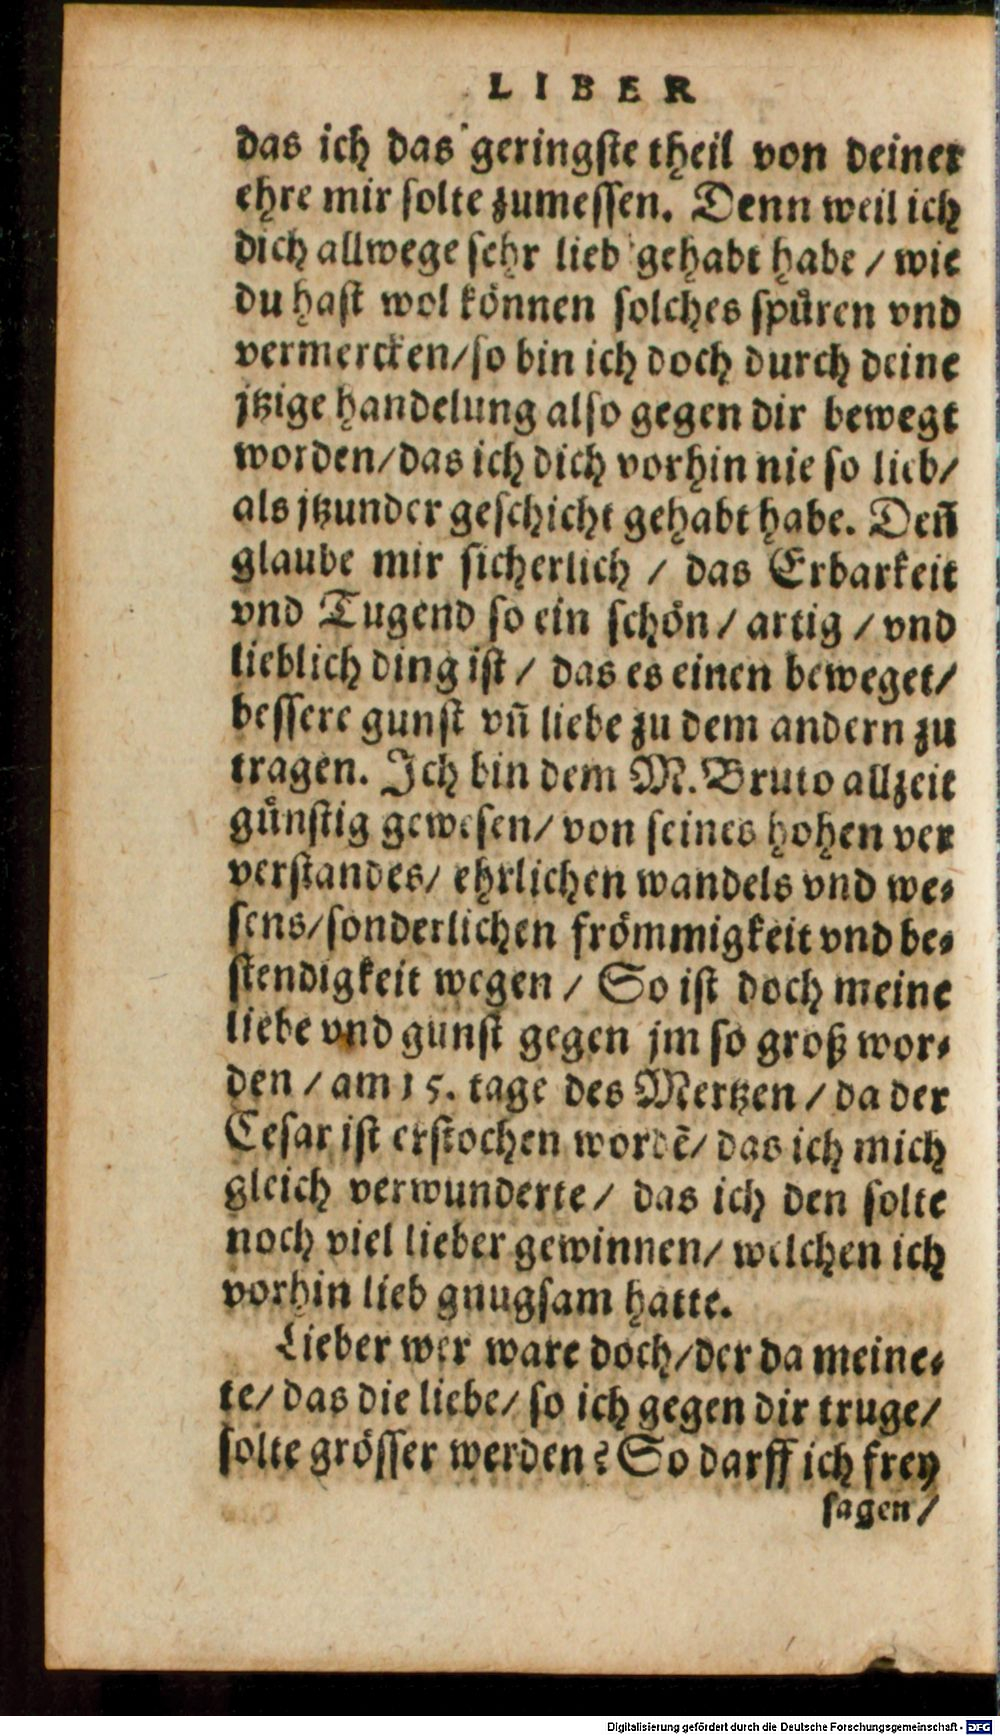 LIBER
das ich das geringste theil von deiner
ehre mir solte zumessen. Denn weil ich
dich allwege sehr lieb gehabt habe / wie
du hast wol können solches spüren vnd
vermercken/so bin ich doch durch deine
jtzige handelung also gegen dir bewegt
worden/das ich dich vorhin nie so lieb/
als jtzunder geschicht gehabt habe. Den̄
glaube mir sicherlich / das Erbarkeit
vnd Tugend so ein schön/ artig / vnd
lieblich ding ist / das es einen beweget/
bessere gunst vn̄ liebe zu dem andern zu
tragen. Ich bin dem M. Bruto allzeit
günstig gewesen/ von seines hohen ver
verstandes/ ehrlichen wandels vnd we-
sens/sonderlichen frömmigkeit vnd be-
stendigkeit wegen / So ist doch meine
liebe vnd gunst gegen jm so groß wor-
den / am 15. tage des Mertzen / da der
Cesar ist erstochen wordē/ das ich mich
gleich verwunderte / das ich den solte
noch viel lieber gewinnen/ welchen ich
vorhin lieb gnugsam hatte.
Lieber wer ware doch/der da meine-
te/ das die liebe/ so ich gegen dir truge/
solte grösser werden? So darff ich frey
sagen/
Digitalisierung gefördert durch die Deutsche Forschungsgemeinschaft - DFG